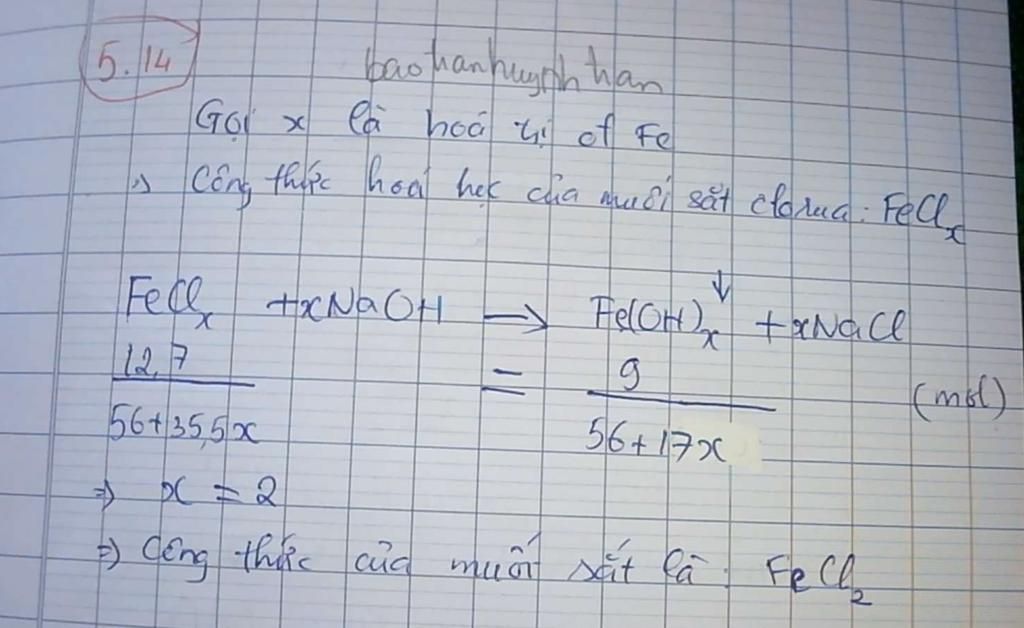 5.14
baohanhuynhtran
Gọi x là hoá trị of Fe
=> Công thức hoá học của muối sắt clorua: FeClₓ
FeClₓ + xNaOH → Fe(OH)ₓ↓ + xNaCl
12,7 = 9 (mol)
56+35,5x 56+17x
=> x = 2
=> Công thức của muối sắt là: FeCl₂